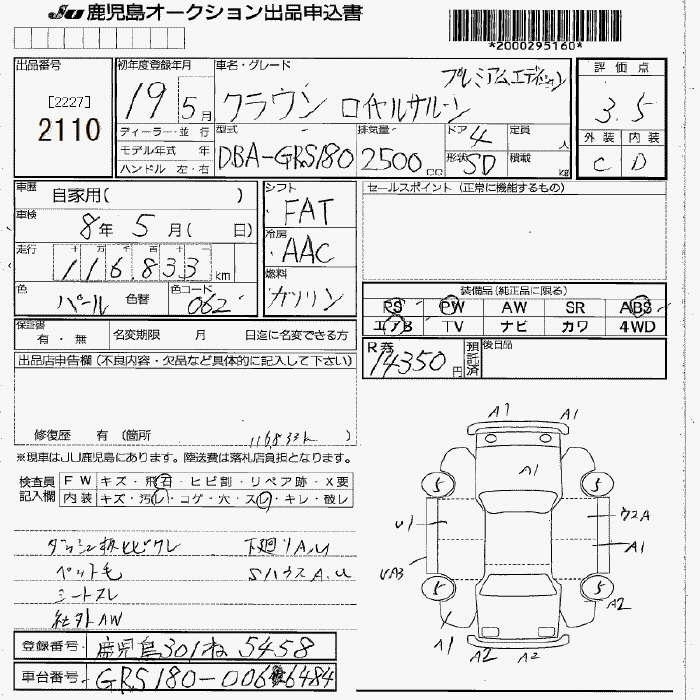 JU 鹿児島オークション出品申込書
*2000295160*
出品番号
[2227]
2110
初年度登録年月
19 5月
車名・グレード
プレミアムエディション
クラウン ロイヤルサルーン
評価点
3.5
外装 内装
C D
ディーラー・並行
モデル年式 年
ハンドル 左・右
型式
DBA-GRS180
排気量
2500 cc
ドア 4
形状 SD
定員 人
積載 kg
車歴
自家用( )
車検
8年 5月( 日)
走行
十 万 千 百 十 一
116,833 km
色
パール
色替
色コード
062
シフト
FAT
冷房
AAC
燃料
ガソリン
セールスポイント (正常に機能するもの)
装備品(純正品に限る)
PS PW AW SR ABS
エアB TV ナビ カワ 4WD
保証書
有・無
名変期限 月 日迄に名変できる方
R券
14350円
預託済
後日品
出品店申告欄(不良内容・欠品など具体的に記入して下さい)
修復歴 有 (箇所 )
116833k
※現車はJU鹿児島にあります。陸送費は落札店負担となります。
検査員記入欄
FW キズ・飛石・ヒビ割・リペア跡・X要
内装 キズ・汚れ・コゲ・穴・スレ・キレ・破レ
ダッシュ板ヒビワレ 下廻りA,U
ペット毛 SハウスA,U
シートスレ
社外AW
登録番号 鹿児島301ね5458
車台番号 GRS180-0066484
A1 A1
A1
5 5
U1 ウスA
A1
UA3
5 5
A2
A1 A2 A2